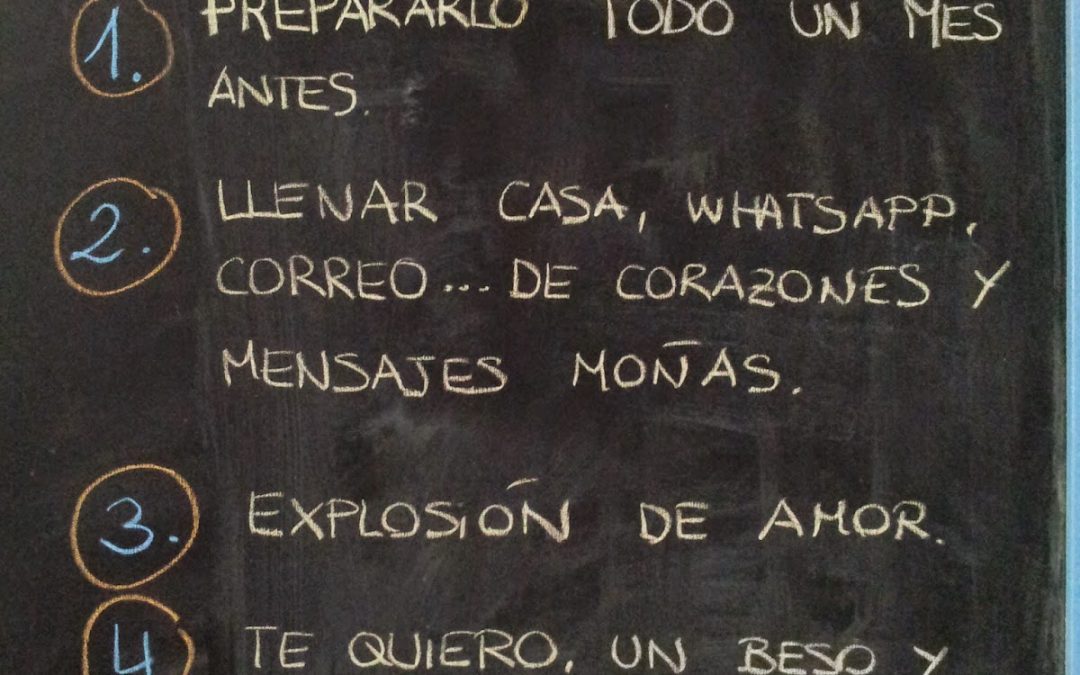 1. PREPARARLO TODO UN MES
ANTES.
2. LLENAR CASA, WHATSAPP,
CORREO... DE CORAZONES Y
MENSAJES MOÑAS.
3. EXPLOSIÓN DE AMOR.
4 TE QUIERO, UN BESO Y